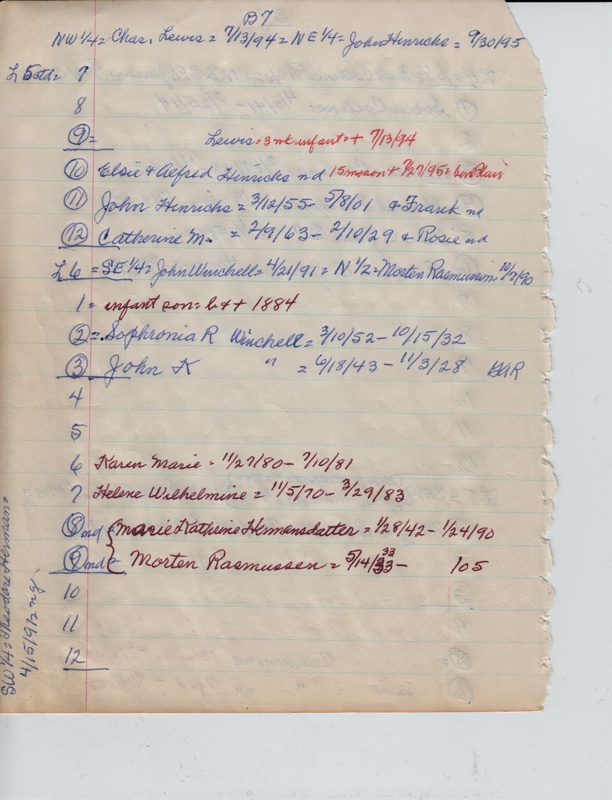 B7
NW 1/4 = Chas. Lewis = 7/13/94 = NE 1/4 = John Hinrichs = 9/30/95
L 5 std = 7
8
9 = Lewis = 3 mk infant = + 7/13/94
10 Elsie & Alfred Hinrichs nd 15 mo son + 7/27/95 =
11 John Hinrichs = 3/12/55 - 5/8/01 & Frank nd
12 Catherine M. = 2/9/63 - 2/10/29 & Rosie nd
L 6 = SE 1/4 = John Winchell = 4/21/91 = N 1/2 = Morten Rasmussen = 10/7/90
1 = infant son = b + + 1884
2 = Sophronia R Winchell = 3/10/52 - 10/15/32
3 John K " = 6/18/43 - 11/3/28 GAR
4
5
6 Karen Marie = 11/27/80 - 7/10/81
7 Helene Wilhelmine = 11/5/70 - 3/29/83
8 nd { Marie Kathrine Hermansdatter = 1/28/42 - 1/24/90
9 nd { Morten Rasmussen = 5/14/33 - /05
10
11
12
SW 1/4 = Theodore Herman =
4/15/92 ng